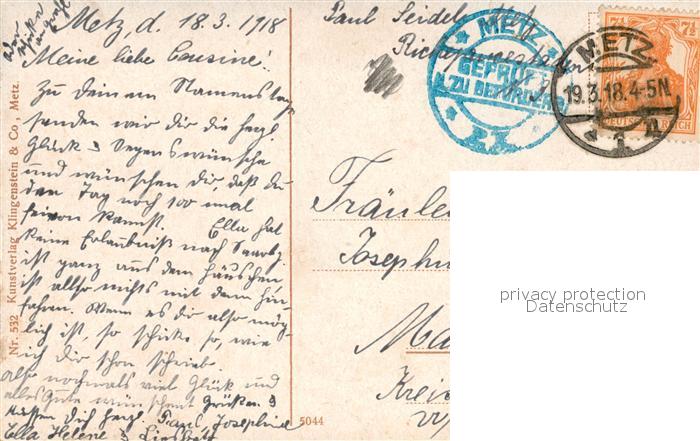 Metz, d. 18.3.1918
Meine liebe Cousine!
Zu deinem Namenstag
senden wir dir die herzl.
Glück & Segenswünsche
und wünschen dir, daß du
den Tag noch 100 mal
feiern kannst. Ella hat
keine Erlaubniß nach Saarbg.
ist ganz aus dem Häuschen
ist allso nichts mit dem hin-
fahren. Wenn es dir also mög-
lich ist, so schicke so, wie
ich dir schon schrieb.
Also nochmals viel Glück und
alles Gute wünschent Grüßen &
küssen dich herzl. Paul, Josephine
Ella Helene &
Nr. 532 Kunstverlag Klingenstein & Co., Metz.
5044
Paul Seidel Metz
METZ
GEPRÜFT
U. ZU BEFÖRDERN
METZ
19.3.18.4-5N.
7½ 7½
DEUTSCHES REICH
Fräule
Josephi
Kreis
privacy protection
Datenschutz